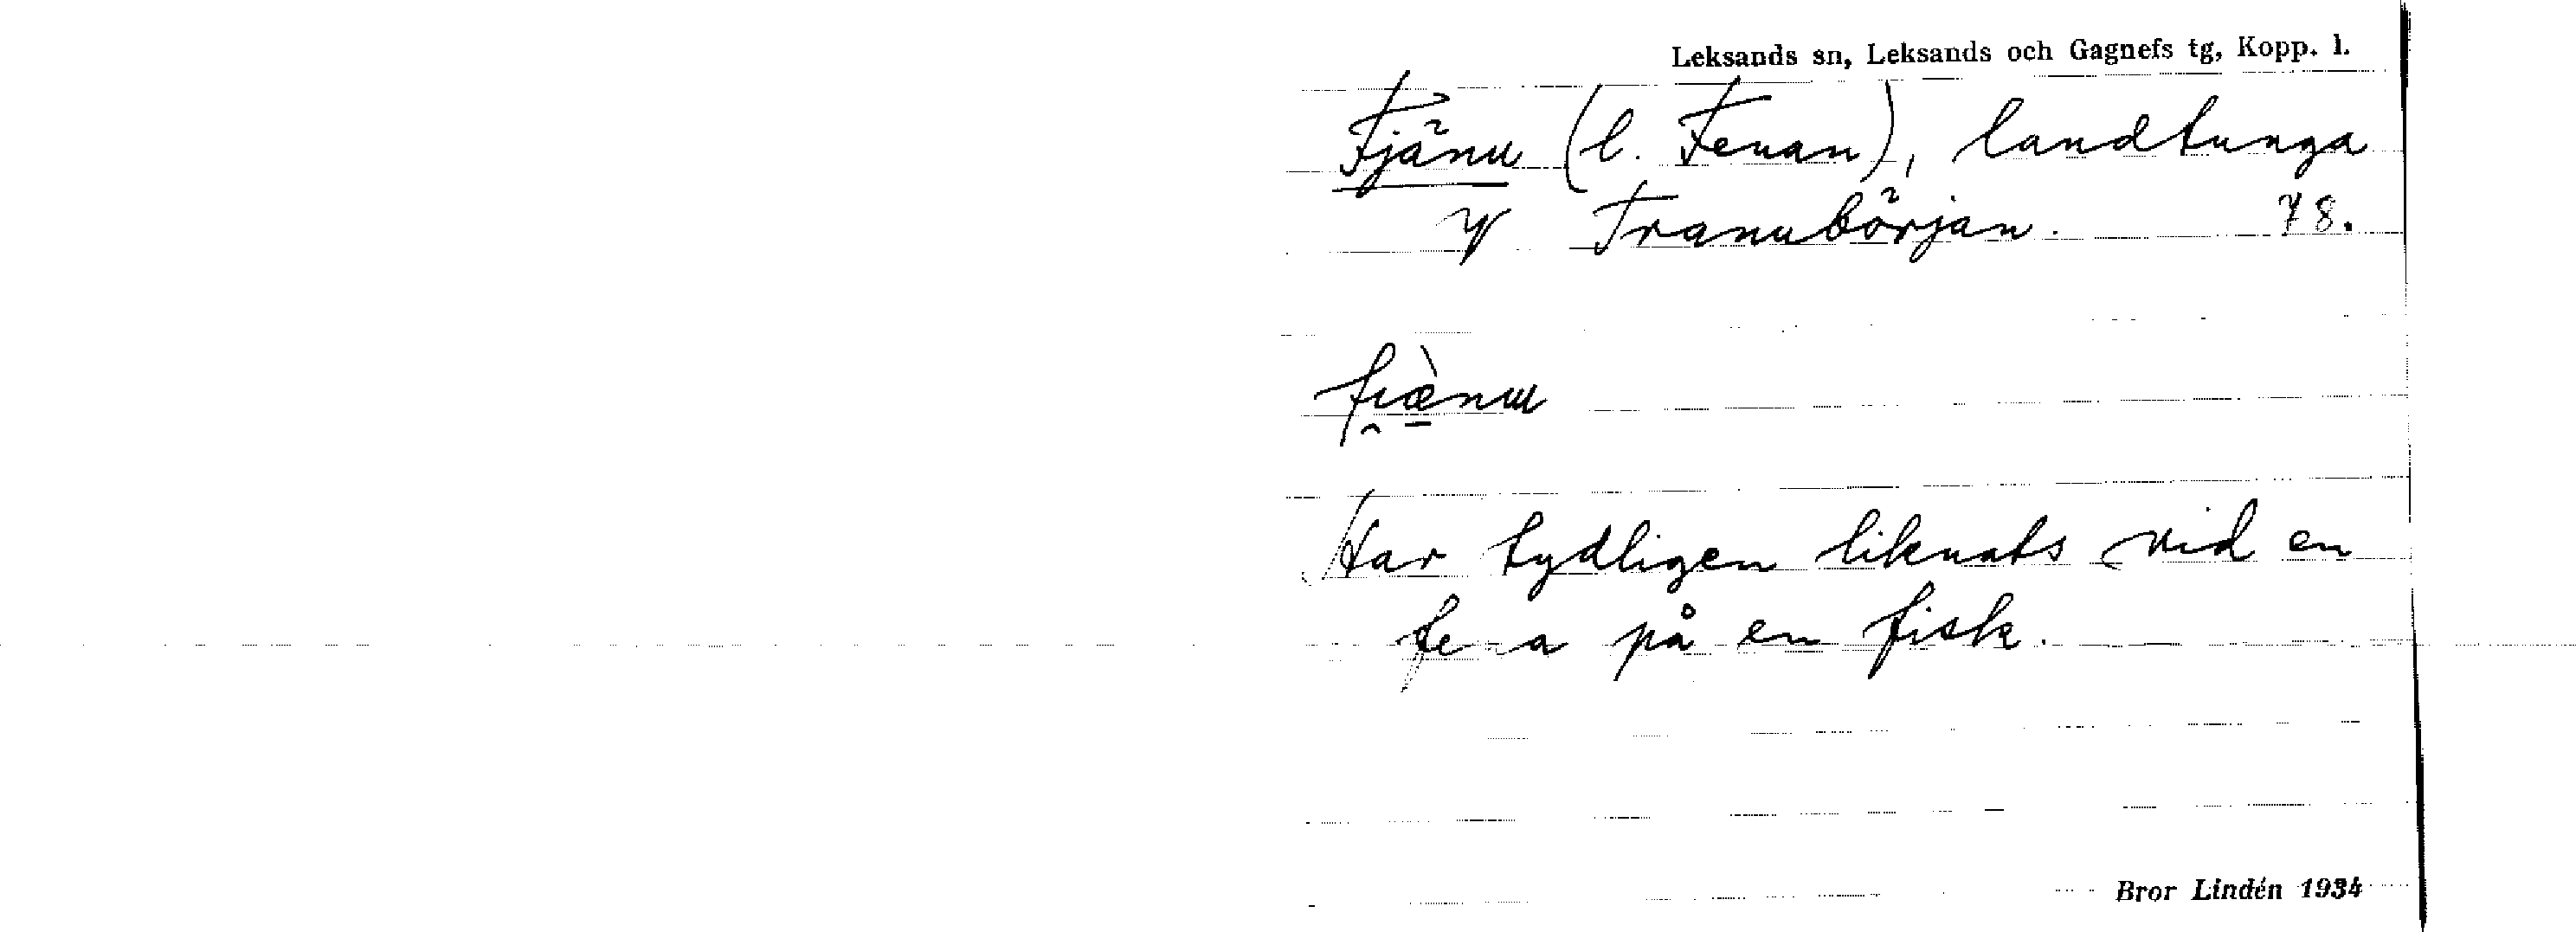 Leksands sn, Leksands och Gagnefs tg, Kopp. l.
Fjänu (l. Fenan), landtunga
Tranubörjan. 78.
fi̯æ̀nɯ
Har tydligen liknats vid en
fena på en fisk.
Bror Lindén 1934